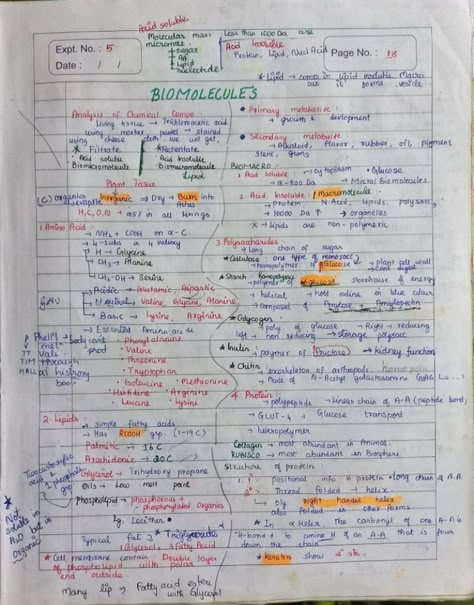 Acid soluble
Molecular mass less than 1000 Da are
micromole.
→ sugar
→ AA
→ Lipid
→ nucleotide
Acid Insoluble
Protein, Lipid, Nucl Acid
Expt. No. : 5
Date : / /
Page No. : 18
* Lipid → comes in Lipid insoluble Macro
it forms vesicle
BIOMOLECULES
Analysis of Chemical Compo.
Living tissue → Trichloroacetic acid
using mortar pestel →
using cheese cloth we will get,
* Filtrate
* Retentate
• Acid soluble
• Acid Insoluble
Biomicromolecule
Biomacromolecule
Lipid
Plant Tissue
Inorganic → Dry → Burn into
Ashes
H, C, O, N → all living things
1. Amino Acid :
→ NH₂ + COOH on α-C.
→ 4-Subs in 4 valency
→ H → Glycine
→ CH₃ → Alanine
→ CH₂-OH → Serine
→ Acidic → Glutamic, Aspartic
→ Neutral → Valine, Glycine, Alanine
→ Basic → Lysine, Arginine
GAV
→ Essential Amino acids
• Phenyl alanine
• Valine
• Threonine
• Tryptophan
• Isoleucine • Methionine
• Histidine • Arginine
• Leucine • Lysine
TT
TIM through
HALL
2. Lipids
→ simple fatty acids
→ Has RCOOH grp. (1-19 C)
Palmitic → 16 C
Arachidonic → 20 C
Glycerol → Trihydroxy propane
Oils → Low melt point
Phospholipid → phosphorous +
phosphorylated Organics
Eg: Lecithin
* Not
soluble in
H₂O but in
Organic
Typical fat → Triglyceride
Glycerol, 3 Fatty Acid
* Cell membrane contain Double layer
of phospholipid with polar
end outside.
Many lip → Fatty acid ester
with Glycerol
• Primary metabolite :
→ growth & devlopment
• Secondary metabolite
→ Alkaloid, flavor, rubber, oil, pigment
scent, gums
BIOMACRO
1. Acid soluble : → Cytoplasm • Glucose
→ 18-800 Da → Micro/Biomolecules
2. Acid Insoluble : Macromolecule
→ protein, N Acid, Lipids, polysacc,
→ 10000 Da ↑ → organelles
x Lipids are non-polymeric
3 Polysaccharides
→ Long chain of sugar
* Cellulose : one type of monosacc
→ homopolymer of Glucose → plant cell wall
* Starch
→ polymer of glucose → storehouse of energy
→ helical → hold iodine → blue colour
→ composed of Amylose + Amylopectin
* Glycogen
→ poly of glucose → Right → reducing
left → non reducing → storage polysacc
* Inulin :
→ polymer of Fructose → kidney function
* Chitin
→ exoskeleton of arthropods
→ Made of N-Acetyl galactosamine
4. Protein :
→ polypeptide → Linear chain of A-A (peptide bond)
→ GLUT-4 → Glucose transport
→ hetropolymer
Collagen → most abundant in Animal.
RUBISCO → most abundant in Biosphere
Structure of protein
1° : positional info of protein → long chain of A.A
2° : Thread folded → helix
Only right handed helix
also folded in other forms
* In α Helix, the carbonyl of one A-A is
H-bond to amine H of an A-A that is four
down the chain
* keratin show 2° str.